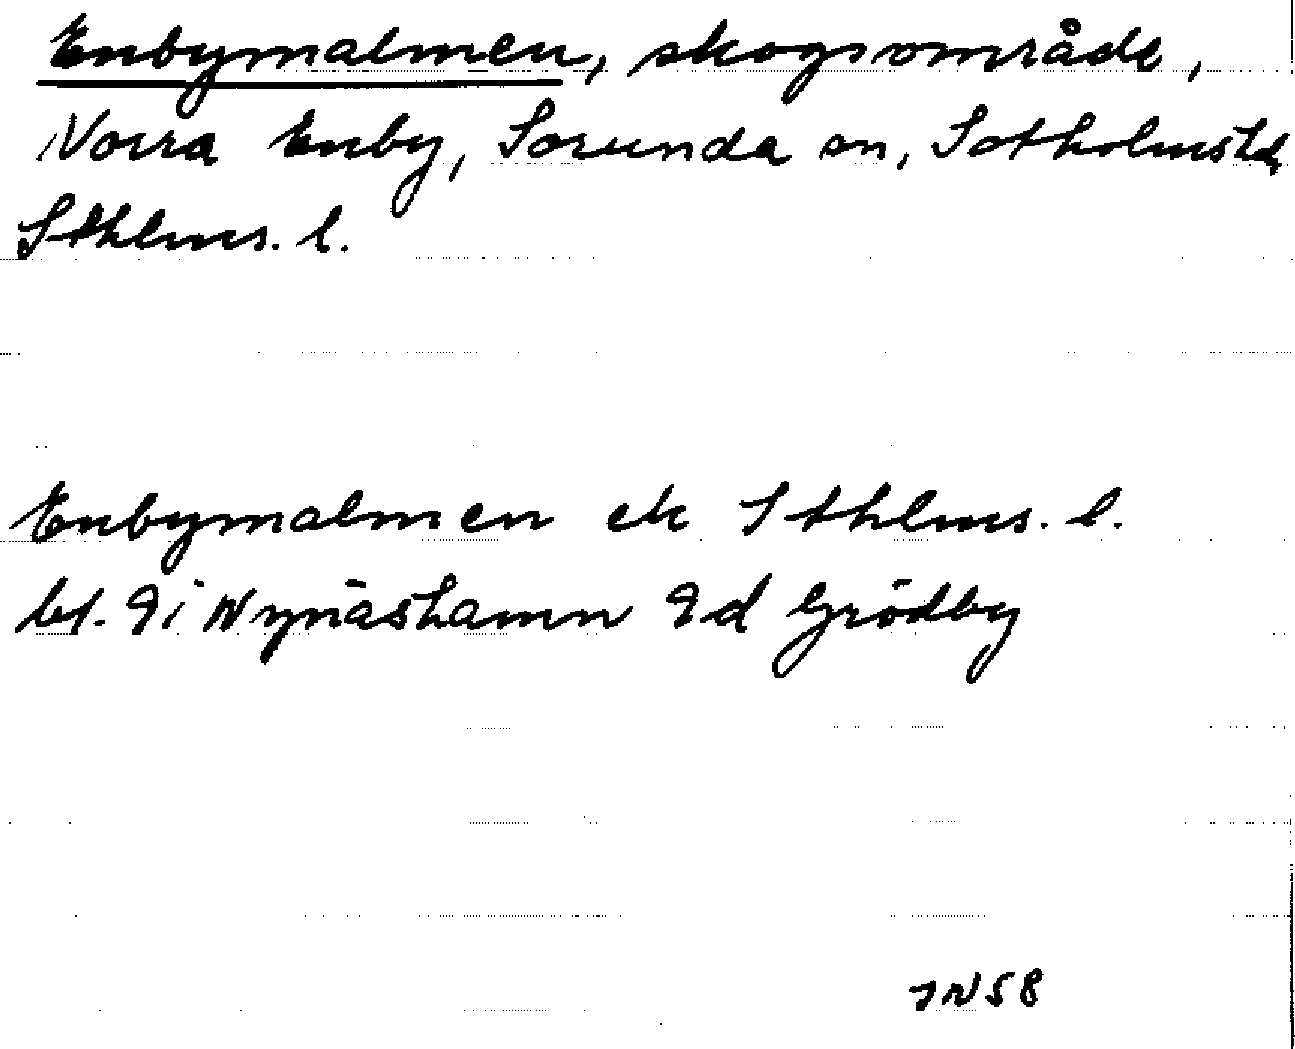 Enbymalmen, skogsområde,
Norra Enby, Sorunda sn, Sotholms hd,
Sthlms. l.
Enbymalmen ek Sthlms. l.
bl. 9i Nynäshamn 9d Grödby
JN58